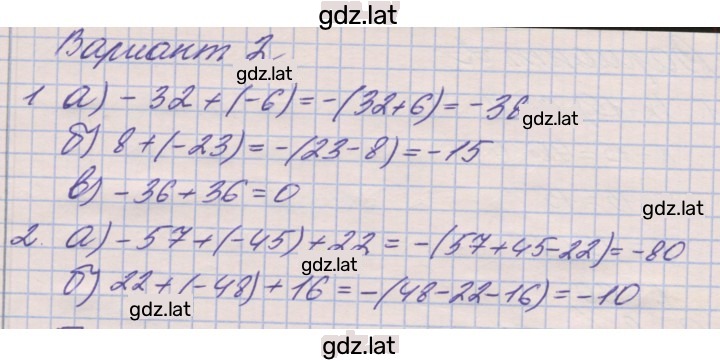 gdz.lat
Вариант 2
gdz.lat
1 а) - 32 + (-6) = -(32+6) = -38
gdz.lat
б) 8 + (-23) = -(23-8) = -15
в) - 36 + 36 = 0
gdz.lat
2. а) - 57 + (-45) + 22 = -(57+45-22) = -80
gdz.lat
б) 22 + (-48) + 16 = -(48-22-16) = -10
gdz.lat
gdz.lat